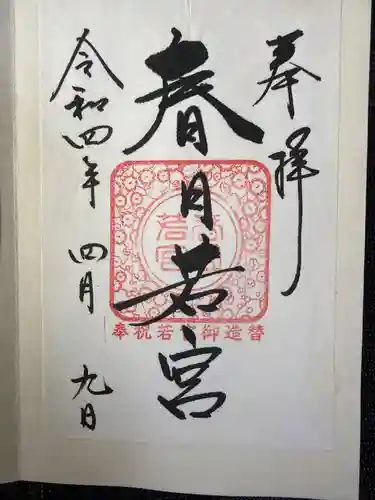 奉拝
春日若宮
奉祝若宮御造替
令和四年 四月 九日